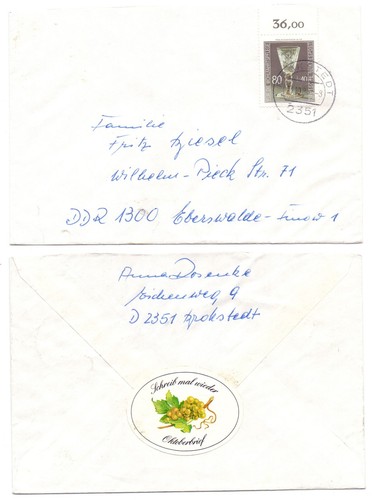 36,00
80
2351
Familie
Fritz Giesel
Wilhelm-Pieck Str. 71
DDR 1300 Eberswalde-Finow 1
Anna Dosenke
9
D 2351 Brokstedt
Schreib mal wieder
Oktoberbrief